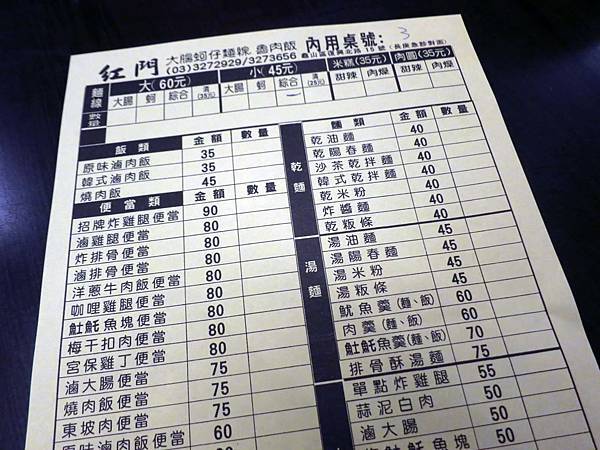 紅門 大腸蚵仔麵線 魯肉飯 內用桌號: 3
(03)3272929/3273656 龜山區復興北路15號(長庚急診對面)
麵線 大(60元) 小(45元) 米糕(35元) 肉圓(35元)
大腸 蚵 綜合 清(35元) 大腸 蚵 綜合 清(25元) 甜辣 肉燥 甜辣 肉燥
數量
飯類 金額 數量
原味滷肉飯 35
韓式滷肉飯 35
燒肉飯 45
便當類 金額 數量
招牌炸雞腿便當 90
滷雞腿便當 80
炸排骨便當 80
滷排骨便當 80
洋蔥牛肉飯便當 80
咖哩雞腿便當 80
魠魠魚塊便當 80
梅干扣肉便當 80
宮保雞丁便當 80
滷大腸便當 75
燒肉飯便當 75
東坡肉便當 75
原味滷肉飯便當 60
麵類 金額 數量
乾麵
乾油麵 40
乾陽春麵 40
沙茶乾拌麵 40
韓式乾拌麵 40
乾米粉 40
炸醬麵 40
乾粄條 40
湯麵
湯油麵 45
湯陽春麵 45
湯米粉 45
湯粄條 45
魷魚羹(麵、飯) 60
肉羹(麵、飯) 60
魠魠魚羹(麵、飯) 70
排骨酥湯麵 75
單點炸雞腿 55
蒜泥白肉 50
滷大腸 50
魠魚塊 50